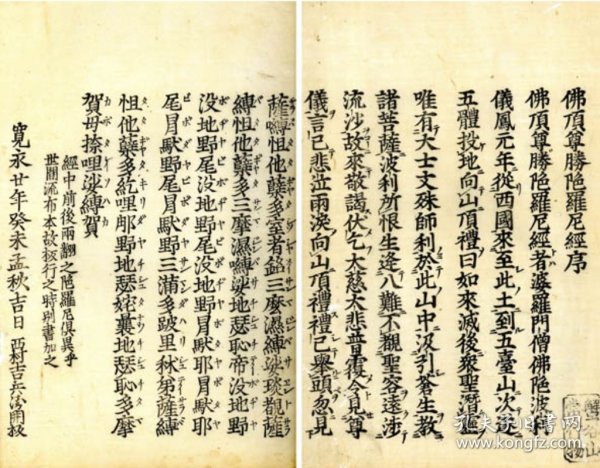 佛頂尊勝陀羅尼經序
佛頂尊勝陀羅尼經者婆羅門僧佛陀波利
儀鳳元年從西國來至此土到五臺山次遂
五體投地向山頂禮曰如來滅後衆聖潛靈
唯有大士文殊師利於此山中汲引蒼生教
諸菩薩波利所恨生逢八難不覩聖容遠涉
流沙故來敬謁伏乞大慈大悲普覆令見尊
儀言已悲泣雨淚向山頂禮禮已舉頭忽見
薩嚩怛他蘖多室者銘三摩濕嚩娑琰覩薩
嚩怛他蘖多三摩濕嚩娑地瑟恥帝没地野
没地野尾没地野尾没地野冐馱耶冐馱耶
尾冐馱野尾冐馱野三滿多跛里秫第薩嚩
怛他蘖多紇哩那野地瑟姹曩地瑟恥多摩
賀母捺哩娑嚩賀
經中前後兩翻之陀羅尼俱異乎
世間流布本故板行之時別書加之
寬永廿年癸未孟秋吉日
西村吉兵衛開板
孔夫子旧书网
www.kongfz.com